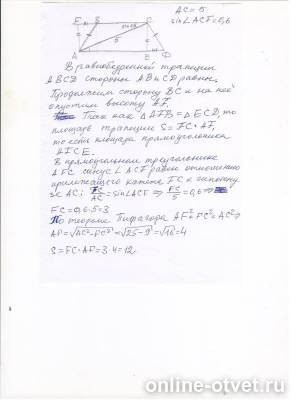 AC = 5.
sin∠ACF = 0,6
5
В равнобедренной трапеции
ABCD стороны AB и CD равны.
Продолжим сторону BC и на нее
опустим высоту AF.
Так как △AFB = △ECD, то
площадь трапеции S = FC · AF,
то есть площадь прямоугольника
AFCE.
В прямоугольном треугольнике
AFC синус ∠ACF равен отношению
прилежащего катета FC к гипотену
зе AC: FC/AC = sin∠ACF ⇒ FC/5 = 0,6 ⇒
FC = 0,6 · 5 = 3
По теореме Пифагора AF²+FC²=AC² ⇒
AF = √AC²-FC² = √25-9 = √16 = 4
S = FC · AF = 3 · 4 = 12.
online-otvet.ru